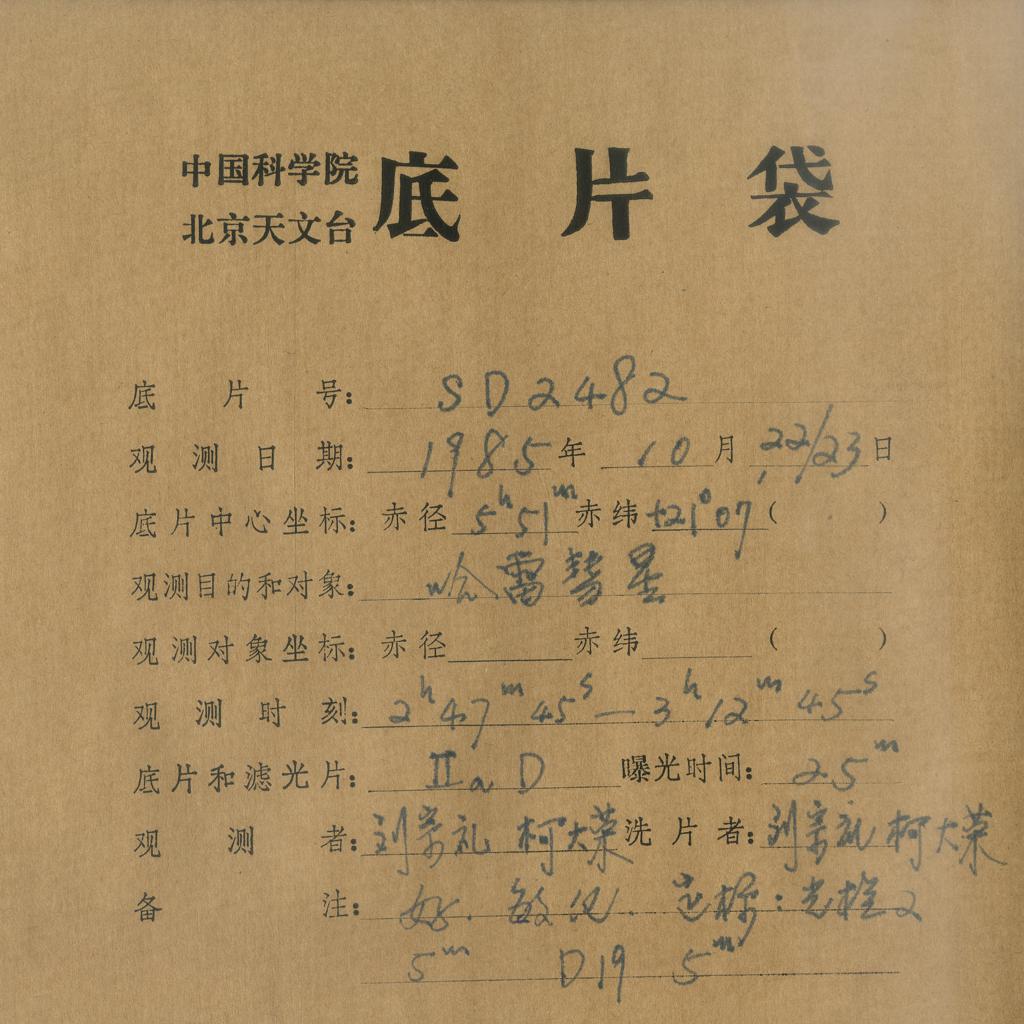 中国科学院
北京天文台
底片袋
底片号: SD2482
观测日期: 1985年 10月 22/23日
底片中心坐标: 赤径 5h51m 赤纬 +21°07 ( )
观测目的和对象: 哈雷彗星
观测对象坐标: 赤径 赤纬 ( )
观测时刻: 2h47m45s — 3h12m45s
底片和滤光片: IIaD 曝光时间: 25m
观测者: 刘宗礼 柯大荣 洗片者: 刘宗礼 柯大荣
备注: 好. 敏化. 定标: 光楔2
5m D19 5m